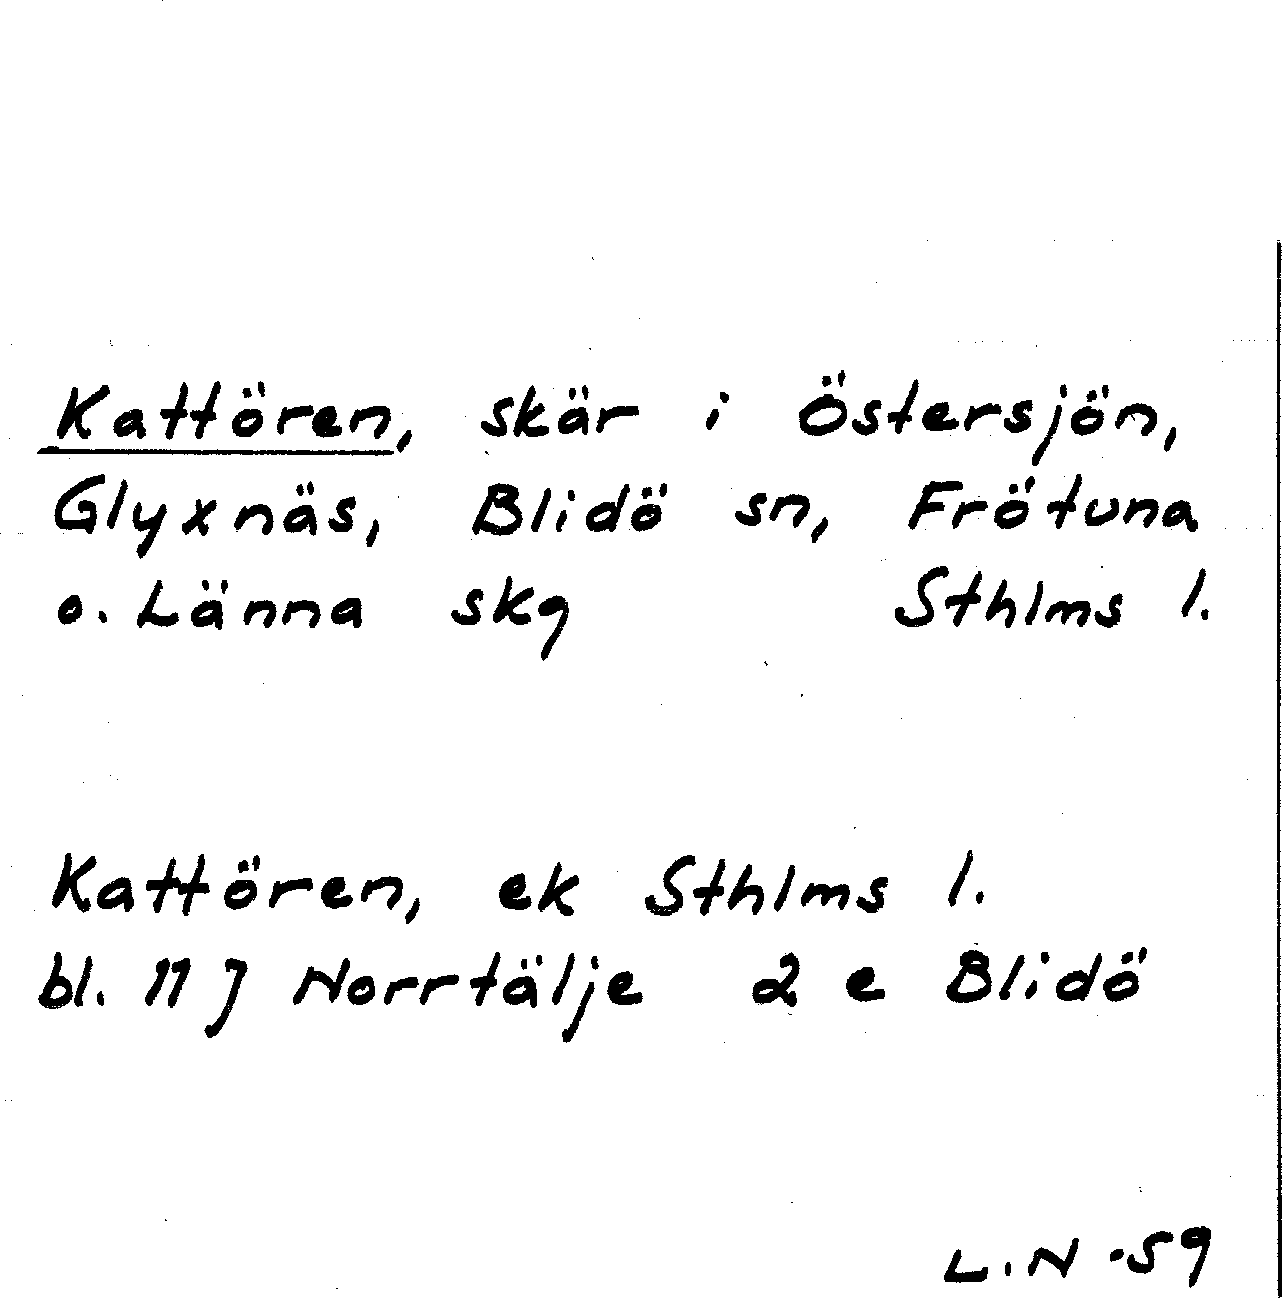 Kattören, skär i Östersjön,
Glyxnäs, Blidö sn, Frötuna
o. Länna skg Sthlms l.
Kattören, ek Sthlms l.
bl. 11 J Norrtälje 2 e Blidö
L.N -59